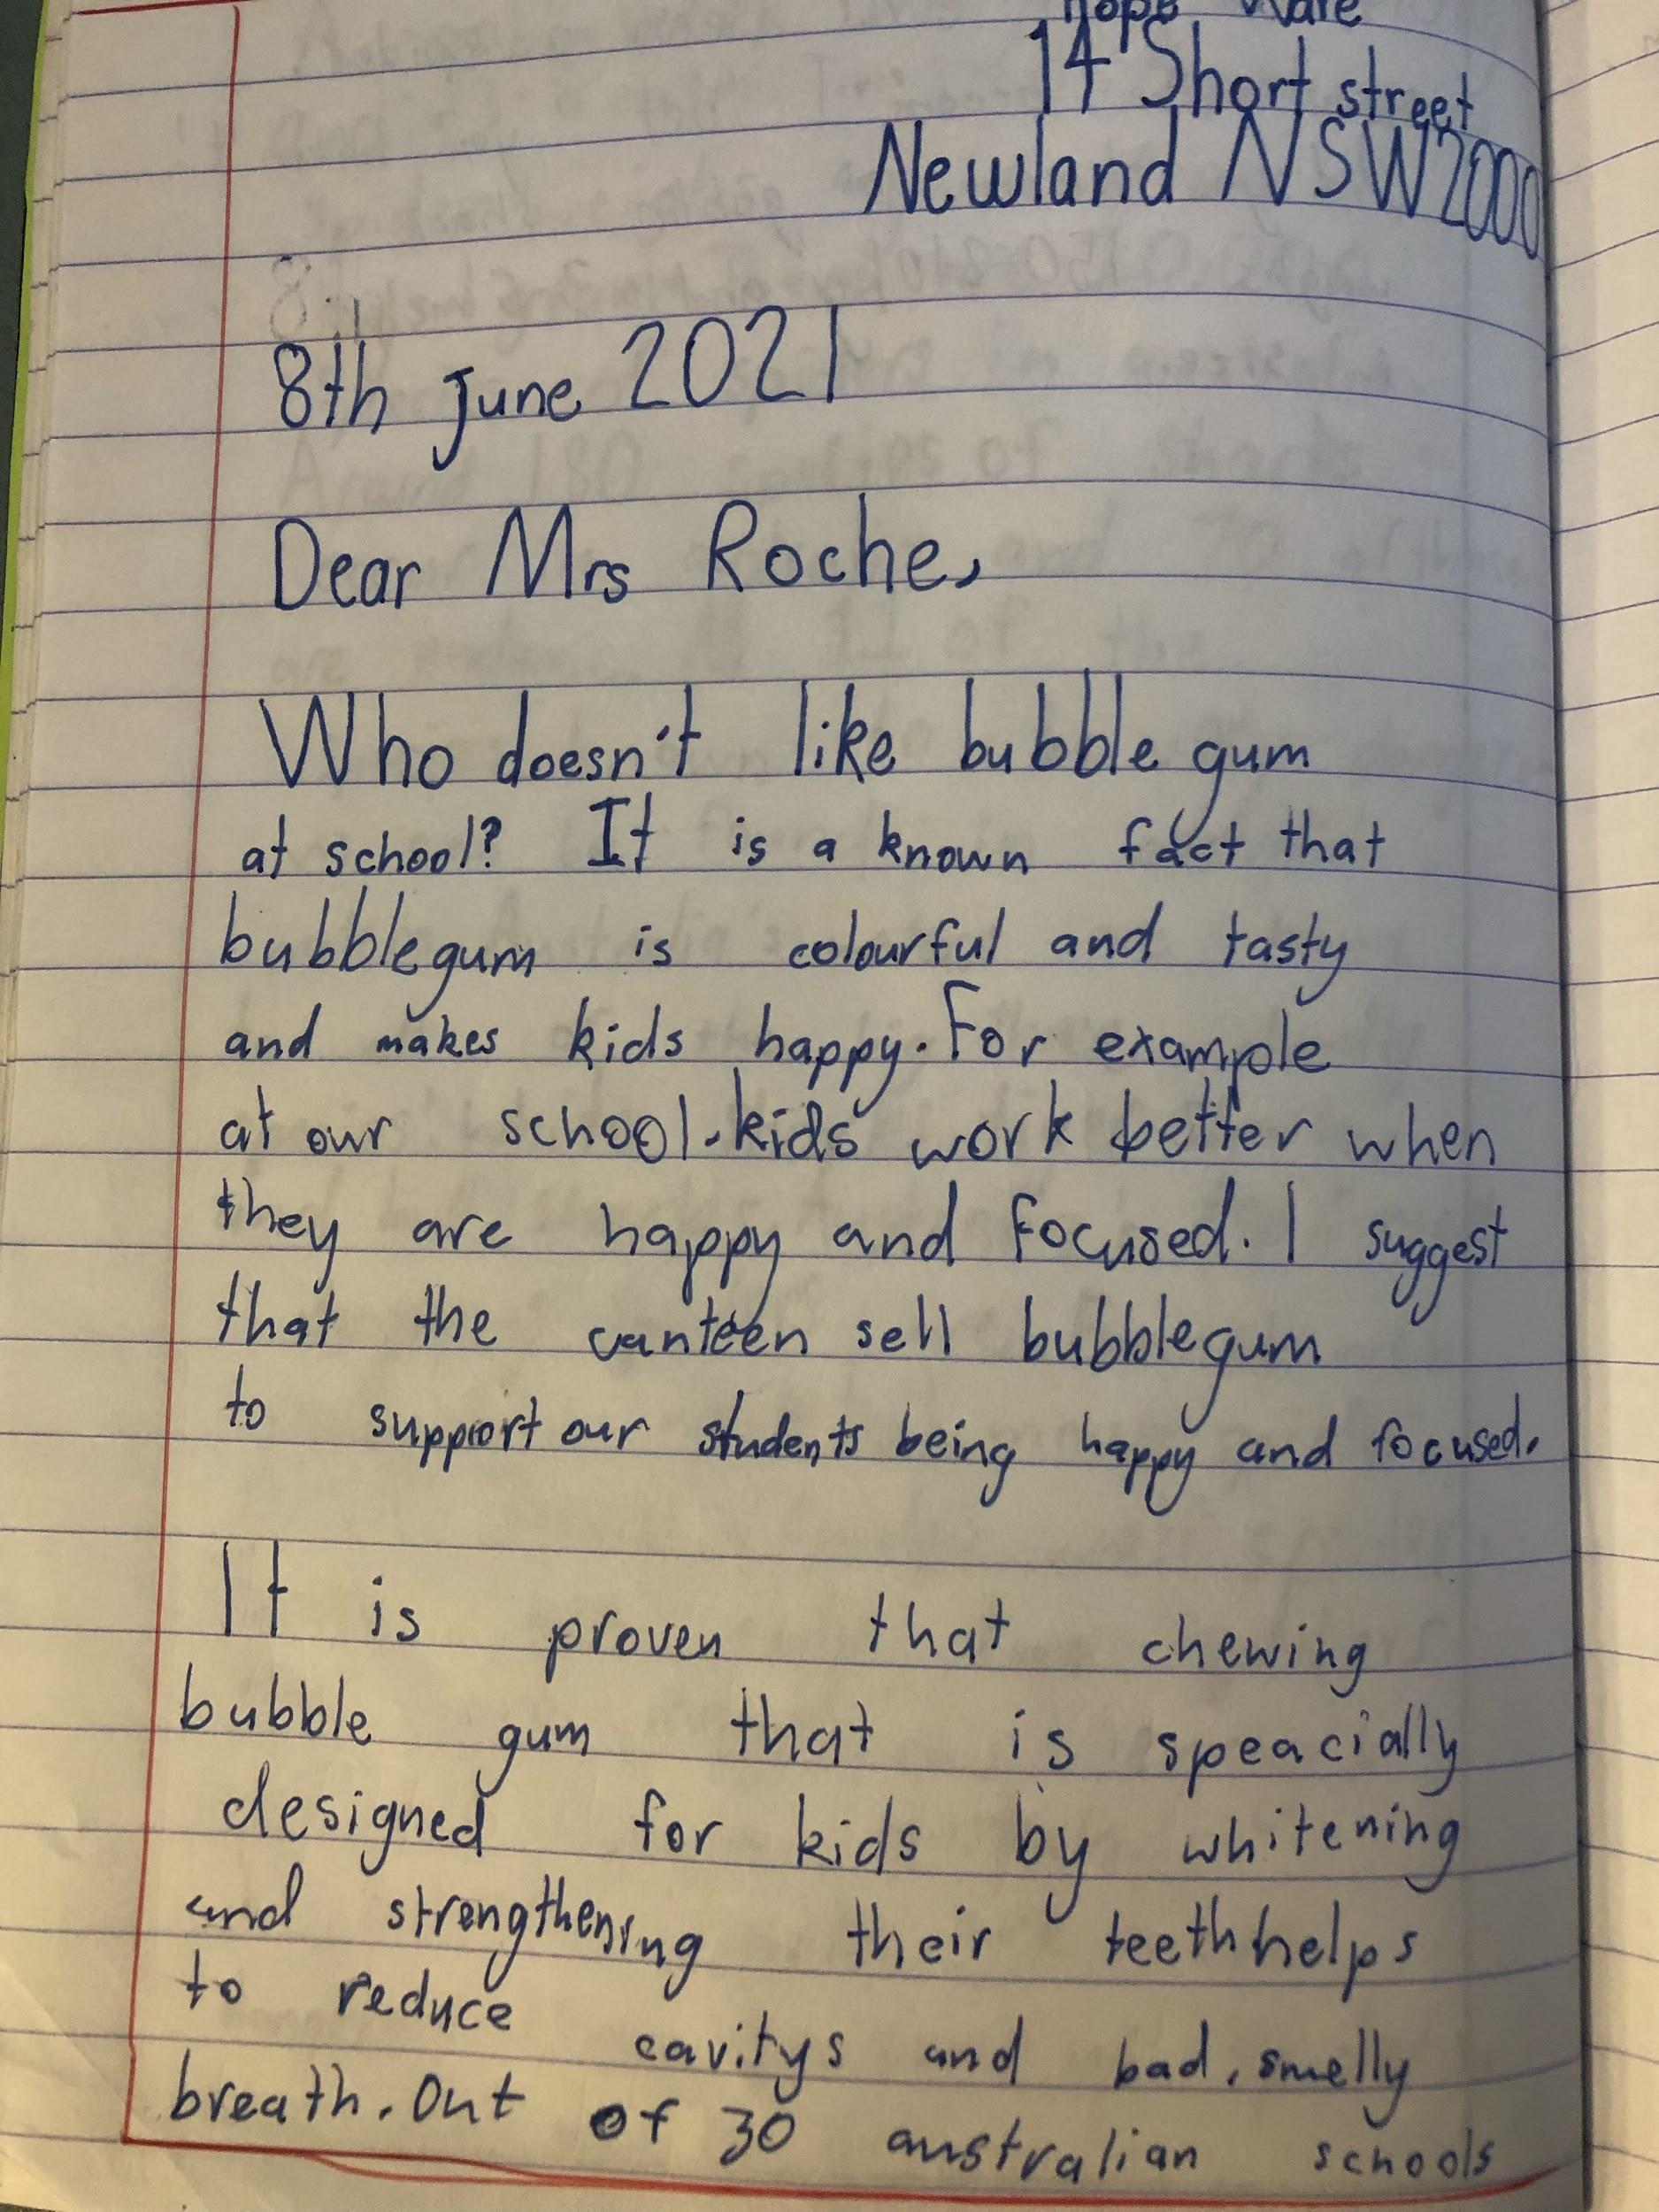 14 Short street
Newland NSW 2000
8th June 2021
Dear Mrs Roche,
Who doesn't like bubble gum
at school? It is a known fact that
bubblegum is colourful and tasty
and makes kids happy. For example
at our school. kids work better when
they are happy and focused. I suggest
that the canteen sell bubblegum
to support our students being happy and focused.
It is proven that chewing
bubble gum that is speacially
designed for kids by whitening
and strengthening their teeth helps
to reduce cavitys and bad, smelly
breath. Out of 30 australian schools